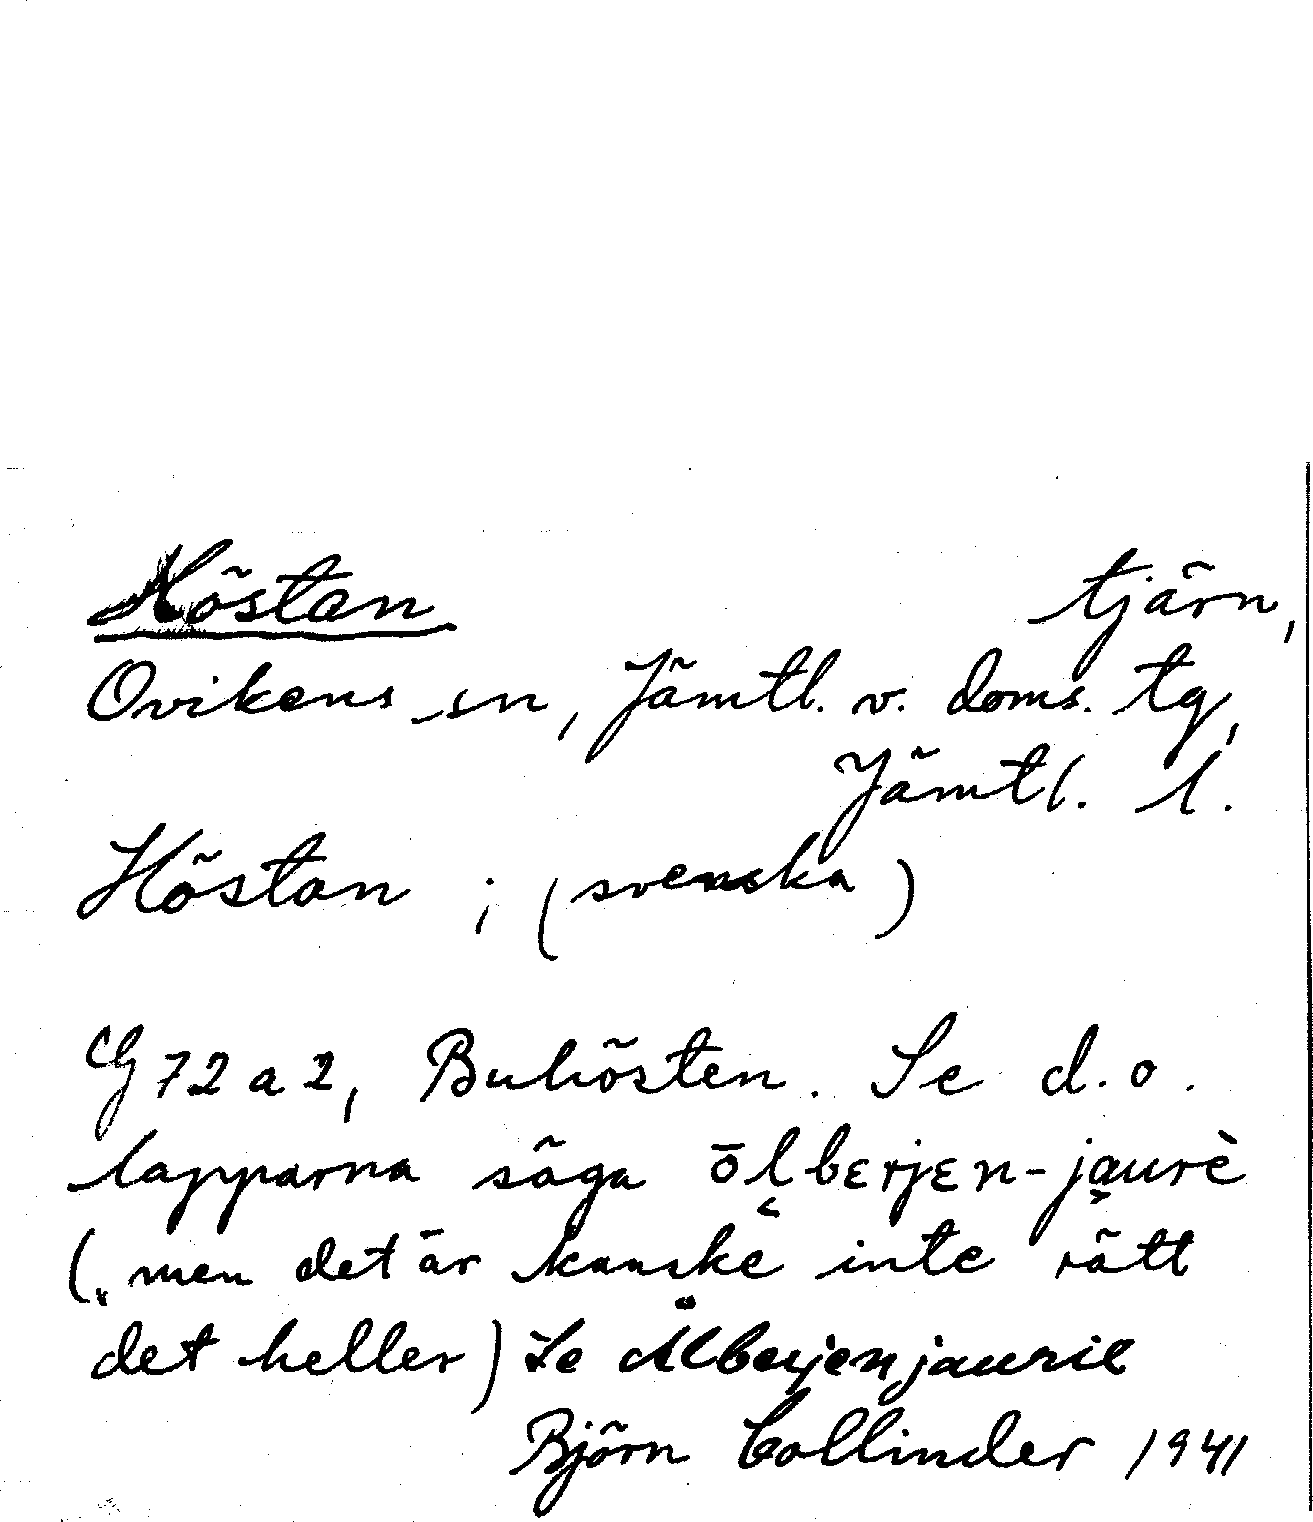 Höstan tjärn,
Ovikens sn, Jämtl. v. doms. tg,
Jämtl. l.
Höstan ; (svenska)
G 72 a 2, Buhösten. Se d.o.
lapparna säga ōl̯bɛrjɛn-ja̯urè
(„men det är kanske inte rätt
det heller) Se Ålberjenjaurie
Björn Collinder 1941